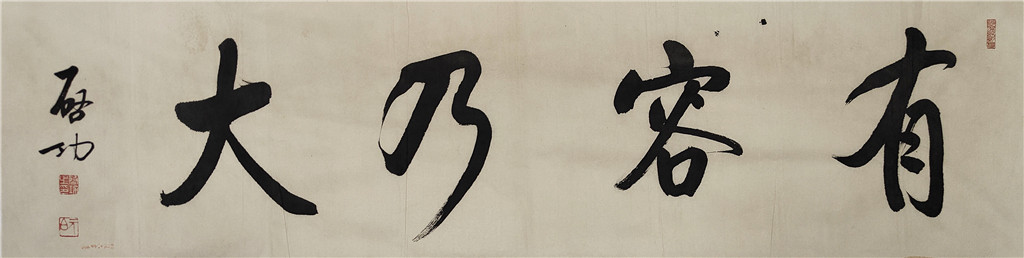 有容乃大
启功